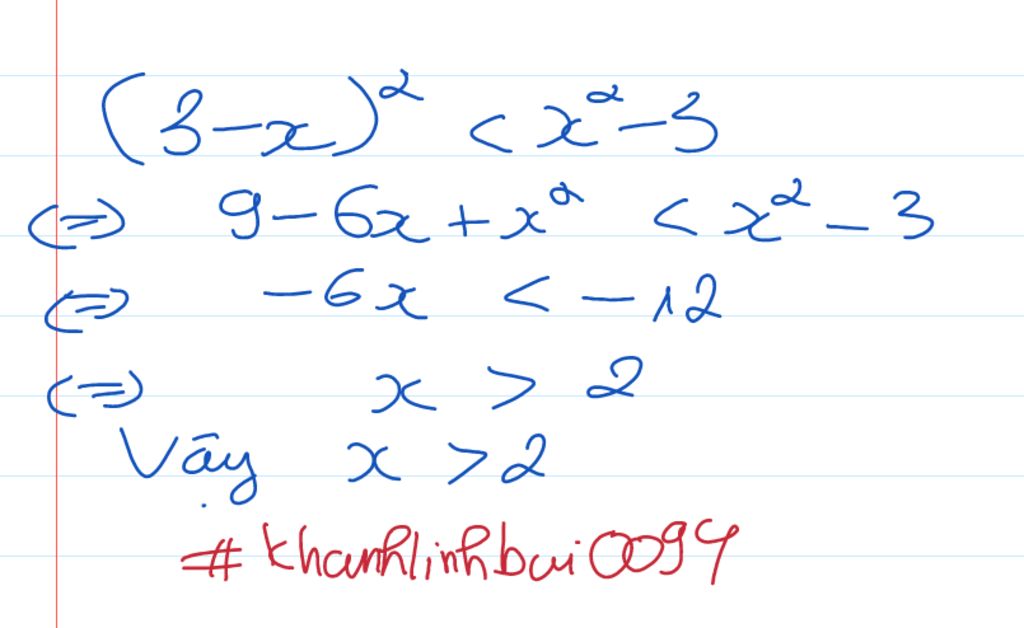 (3-x)² < x² - 3
<=> 9 - 6x + x² < x² - 3
<=> -6x < -12
<=> x > 2
Vậy x > 2
#khanhlinhbui0094